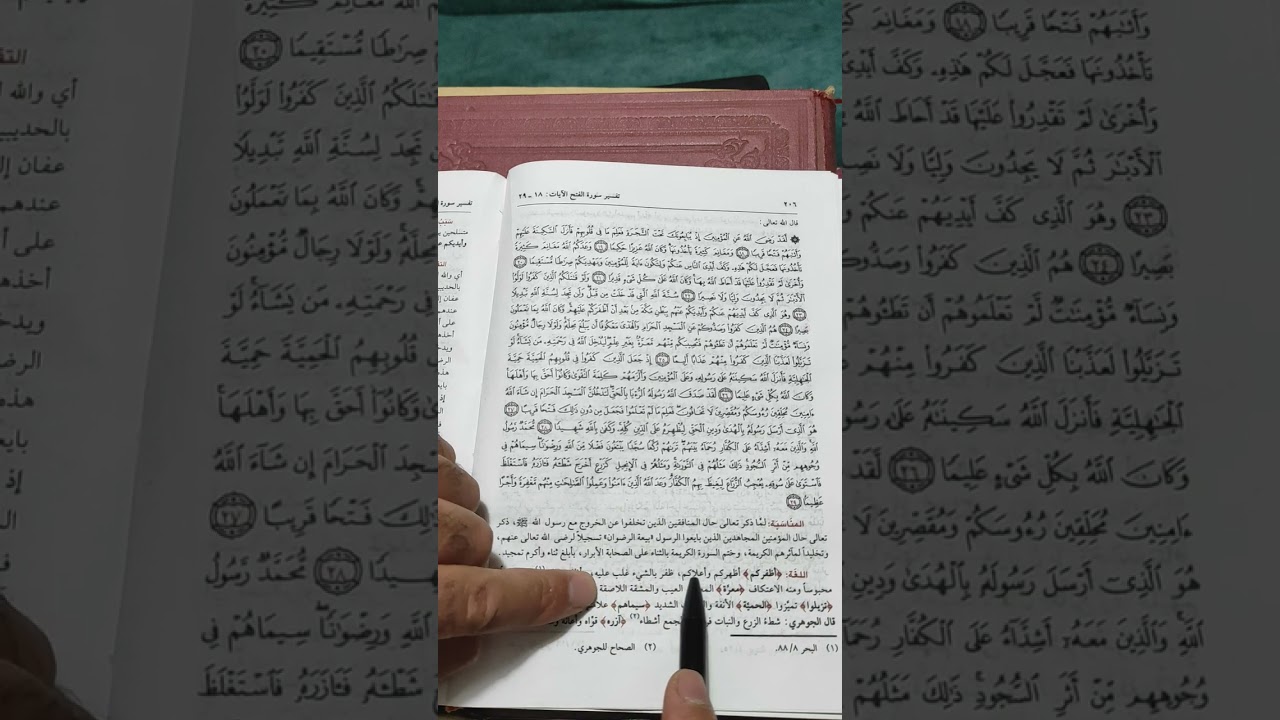 ٢٠٦
تفسير سورة الفتح الآيات : ١٨ - ٢٩
قال الله تعالى :
۞ لَّقَدْ رَضِيَ اللَّهُ عَنِ الْمُؤْمِنِينَ إِذْ يُبَايِعُونَكَ تَحْتَ الشَّجَرَةِ فَعَلِمَ مَا فِي قُلُوبِهِمْ فَأَنزَلَ السَّكِينَةَ عَلَيْهِمْ
وَأَثَابَهُمْ فَتْحًا قَرِيبًا ١٨ وَمَغَانِمَ كَثِيرَةً يَأْخُذُونَهَا وَكَانَ اللَّهُ عَزِيزًا حَكِيمًا ١٩ وَعَدَكُمُ اللَّهُ مَغَانِمَ كَثِيرَةً
تَأْخُذُونَهَا فَعَجَّلَ لَكُمْ هَذِهِ وَكَفَّ أَيْدِيَ النَّاسِ عَنكُمْ وَلِتَكُونَ آيَةً لِّلْمُؤْمِنِينَ وَيَهْدِيَكُمْ صِرَاطًا مُّسْتَقِيمًا ٢٠
وَأُخْرَى لَمْ تَقْدِرُوا عَلَيْهَا قَدْ أَحَاطَ اللَّهُ بِهَا وَكَانَ اللَّهُ عَلَى كُلِّ شَيْءٍ قَدِيرًا ٢١ وَلَوْ قَاتَلَكُمُ الَّذِينَ كَفَرُوا لَوَلَّوُا
الْأَدْبَارَ ثُمَّ لَا يَجِدُونَ وَلِيًّا وَلَا نَصِيرًا ٢٢ سُنَّةَ اللَّهِ الَّتِي قَدْ خَلَتْ مِن قَبْلُ وَلَن تَجِدَ لِسُنَّةِ اللَّهِ تَبْدِيلًا
٢٣ وَهُوَ الَّذِي كَفَّ أَيْدِيَهُمْ عَنكُمْ وَأَيْدِيَكُمْ عَنْهُم بِبَطْنِ مَكَّةَ مِن بَعْدِ أَنْ أَظْفَرَكُمْ عَلَيْهِمْ وَكَانَ اللَّهُ بِمَا تَعْمَلُونَ
بَصِيرًا ٢٤ هُمُ الَّذِينَ كَفَرُوا وَصَدُّوكُمْ عَنِ الْمَسْجِدِ الْحَرَامِ وَالْهَدْيَ مَعْكُوفًا أَن يَبْلُغَ مَحِلَّهُ وَلَوْلَا رِجَالٌ مُّؤْمِنُونَ
وَنِسَاءٌ مُّؤْمِنَاتٌ لَّمْ تَعْلَمُوهُمْ أَن تَطَئُوهُمْ فَتُصِيبَكُم مِّنْهُم مَّعَرَّةٌ بِغَيْرِ عِلْمٍ لِّيُدْخِلَ اللَّهُ فِي رَحْمَتِهِ مَن يَشَاءُ لَوْ
تَزَيَّلُوا لَعَذَّبْنَا الَّذِينَ كَفَرُوا مِنْهُمْ عَذَابًا أَلِيمًا ٢٥ إِذْ جَعَلَ الَّذِينَ كَفَرُوا فِي قُلُوبِهِمُ الْحَمِيَّةَ حَمِيَّةَ
الْجَاهِلِيَّةِ فَأَنزَلَ اللَّهُ سَكِينَتَهُ عَلَى رَسُولِهِ وَعَلَى الْمُؤْمِنِينَ وَأَلْزَمَهُمْ كَلِمَةَ التَّقْوَى وَكَانُوا أَحَقَّ بِهَا وَأَهْلَهَا
وَكَانَ اللَّهُ بِكُلِّ شَيْءٍ عَلِيمًا ٢٦ لَّقَدْ صَدَقَ اللَّهُ رَسُولَهُ الرُّؤْيَا بِالْحَقِّ لَتَدْخُلُنَّ الْمَسْجِدَ الْحَرَامَ إِن شَاءَ اللَّهُ
آمِنِينَ مُحَلِّقِينَ رُءُوسَكُمْ وَمُقَصِّرِينَ لَا تَخَافُونَ فَعَلِمَ مَا لَمْ تَعْلَمُوا فَجَعَلَ مِن دُونِ ذَلِكَ فَتْحًا قَرِيبًا ٢٧
هُوَ الَّذِي أَرْسَلَ رَسُولَهُ بِالْهُدَى وَدِينِ الْحَقِّ لِيُظْهِرَهُ عَلَى الدِّينِ كُلِّهِ وَكَفَى بِاللَّهِ شَهِيدًا ٢٨ مُّحَمَّدٌ رَّسُولُ
اللَّهِ وَالَّذِينَ مَعَهُ أَشِدَّاءُ عَلَى الْكُفَّارِ رُحَمَاءُ بَيْنَهُمْ تَرَاهُمْ رُكَّعًا سُجَّدًا يَبْتَغُونَ فَضْلًا مِّنَ اللَّهِ وَرِضْوَانًا سِيمَاهُمْ فِي
وُجُوهِهِم مِّنْ أَثَرِ السُّجُودِ ذَلِكَ مَثَلُهُمْ فِي التَّوْرَاةِ وَمَثَلُهُمْ فِي الْإِنجِيلِ كَزَرْعٍ أَخْرَجَ شَطْأَهُ فَآزَرَهُ فَاسْتَغْلَظَ
فَاسْتَوَى عَلَى سُوقِهِ يُعْجِبُ الزُّرَّاعَ لِيَغِيظَ بِهِمُ الْكُفَّارَ وَعَدَ اللَّهُ الَّذِينَ آمَنُوا وَعَمِلُوا الصَّالِحَاتِ مِنْهُم مَّغْفِرَةً وَأَجْرًا
عَظِيمًا ٢٩
المناسبة: لمَّا ذكر تعالى حال المنافقين الذين تخلفوا عن الخروج مع رسول الله ﷺ، ذكر
تعالى حال المؤمنين المجاهدين الذين بايعوا الرسول «بيعة الرضوان» تسجيلاً لرضى الله تعالى عنهم،
وتخليداً لمآثرهم الكريمة، وختم السورة الكريمة بالثناء على الصحابة الأبرار، بأبلغ ثناء وأكرم تمجيد.
اللغة: ﴿أظفركم﴾ أظهركم وأعلاكم، ظفر بالشيء غلب عليه
محبوساً ومنه الاعتكاف ﴿معرّة﴾ العيب والمشقة اللاصقة
﴿تزيلوا﴾ تميَّزوا ﴿الحمية﴾ الأنفة الشديد ﴿سيماهم﴾
قال الجوهري: شطء الزرع والنبات أشطاء (٢) ﴿آزره﴾ قوَّاه وأعانه
(١) البحر ٨/ ٨٨.
(٢) الصحاح للجوهري.